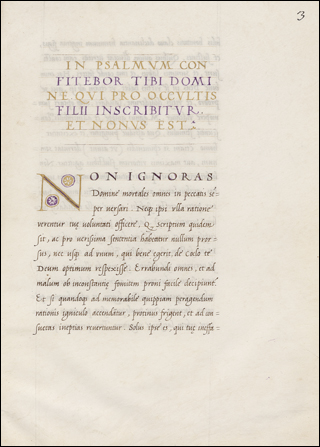 3
IN PSALMVM CON
FITEBOR TIBI DOMI
NE QVI PRO OCCVLTIS
FILII INSCRIBITVR.
ET NONVS EST:
NON IGNORAS
Domine mortales omnes in peccatis sę
per versari. Neq; ipsi vlla ratione
verentur tuę voluntati officere. Q Scriptum quidem
sit, ac pro verissima sententia habeatur nullum pror
sus, nec usq; ad vnum, qui bene egerit, de Cœlo te
Deum optimum respexisse. Errabundi omnes, et ad
malum ob inconstantię fomitem proni facile decipiunt̃.
Et si quandoq; ad memorabile quippiam peragendum
rationis igniculo accenditur, protinus frigent, et ad con
suetas ineptias revertuntur. Solus ipse es, qui tuę ineffa-